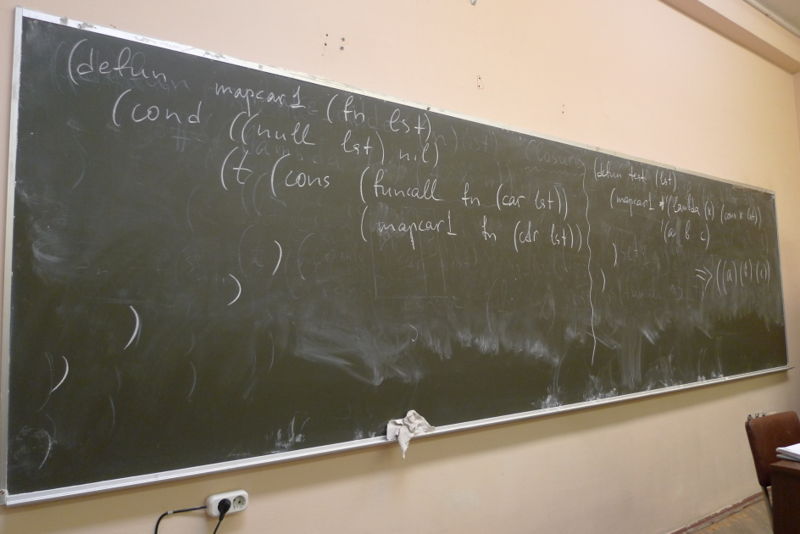 (defun mapcar1 (fn lst)
(cond ((null lst) nil)
(t (cons (funcall fn (car lst))
(mapcar1 fn (cdr lst)))
)
)
)
)
(defun test (lst)
(mapcar1 #'(lambda (x) (cons x lst))
'(a b c)
)
)
=> ((a) (b) (c))